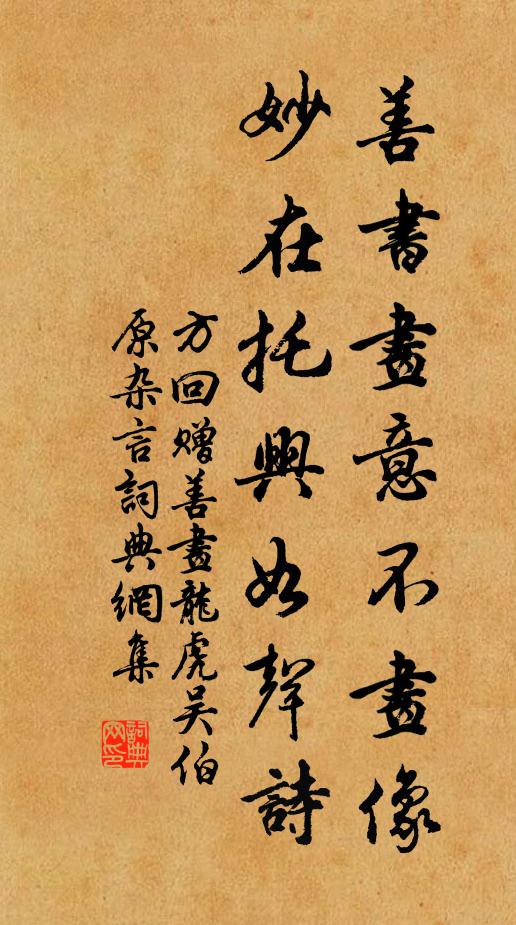 善書畫意不畫像
妙在托興如聲詩
方回贈善畫龍虎吴伯
原杂言詞典網集
詞典
网印